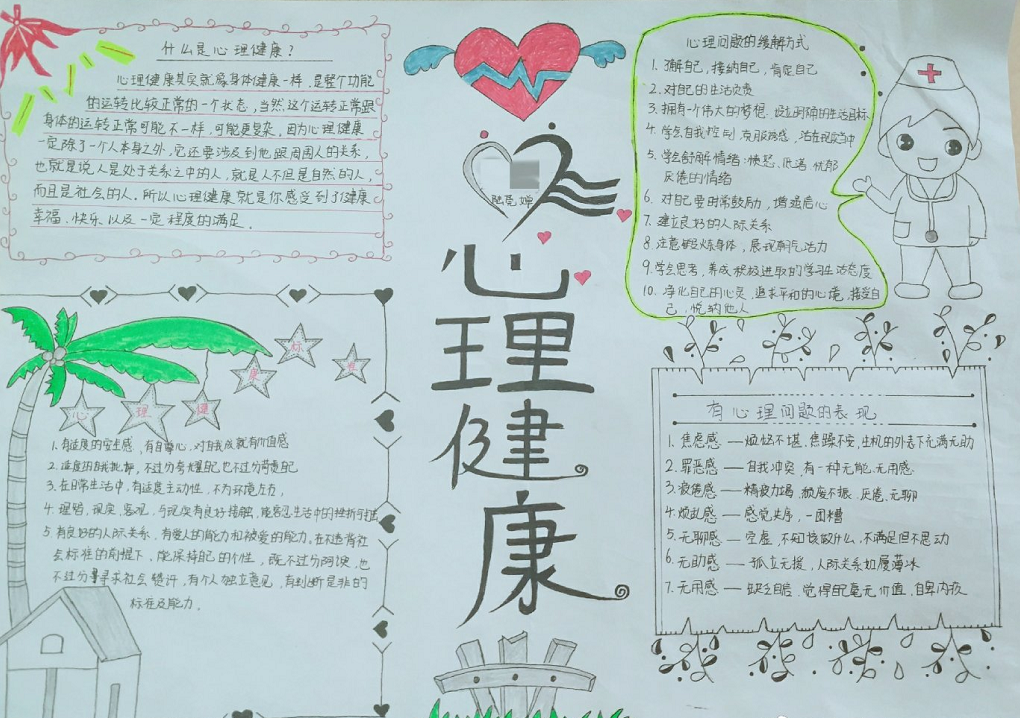 什么是心理健康？
心理健康其实就像身体健康一样，是整个功能
的运转比较正常的一个状态，当然这个运转正常跟
身体的运转正常可能不一样，可能更复杂，因为心理健康
一定除了一个人本身之外，它还要涉及到他跟周围人的关系，
也就是说人是处于关系之中的人，就是人不但是自然的人，
而且是社会的人。所以心理健康就是你感受到了健康
幸福、快乐以及一定程度的满足。
心理健康标准
1. 有适度的安全感，有自尊心，对自我成就有价值感
2. 适度的自我批评，不过分夸耀自己也不过分苛责自己
3. 在日常生活中，有适度主动性，不为环境左右，
4. 理智，现实，客观，与现实有良好接触，能容忍生活中的挫折打击
5. 有良好的人际关系，有爱人的能力和被爱的能力。在不违背社
会标准的前提下，能保持自己的个性，既不过分阿谀，也
不过分寻求社会赞许，有个人独立意见，有判断是非的
标准及能力。
心理健康
心理问题的缓解方式
1. 了解自己，接纳自己，肯定自己
2. 对自己的生活负责
3. 拥有一个伟大的梦想，
4. 学会自我控制，克服诱惑，活在现实当中
5. 学会舒解情绪：愤怒、低落、忧郁
厌倦的情绪
6. 对自己要时常鼓励，增强信心
7. 建立良好的人际关系
8. 注意锻炼身体，展现朝气活力
9. 学会思考，养成积极进取的学习生活态度
10. 净化自己的心灵，追求平和的心境，接受自
己，悦纳他人
有心理问题的表现
1. 焦虑感 — 烦恼不堪，焦躁不安，生机的外表下充满无助
2. 罪恶感 — 自我冲突，有一种无能、无用感
3. 疲倦感 — 精疲力竭，颓废不振，厌倦、无聊
4. 烦乱感 — 感觉失序，一团糟
5. 无聊感 — 空虚，不知该做什么，不满足但不想动
6. 无助感 — 孤立无援，人际关系如履薄冰
7. 无用感 — 缺乏自信，觉得自己毫无价值，自卑内疚